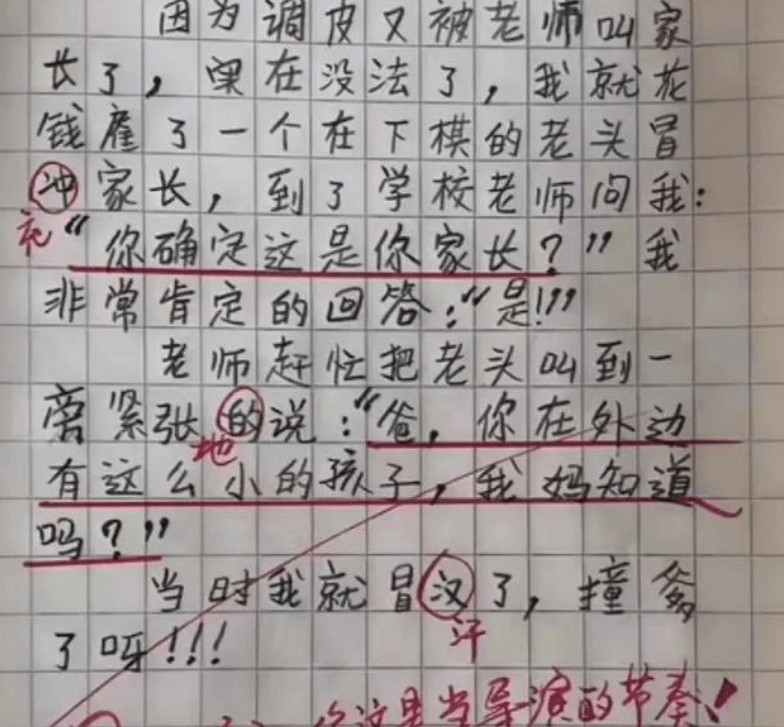 因为调皮又被老师叫家
长了，实在没法了，我就花
钱雇了一个在下棋的老头冒
冲家长，到了学校老师问我：
充
“你确定这是你家长？”我
非常肯定的回答：“是!”
老师赶忙把老头叫到一
旁紧张的说：“爸，你在外边
地
有这么小的孩子，我妈知道
吗？”
当时我就冒汉了，撞爹
汗
了呀!!!
你这是当导演的节奏!